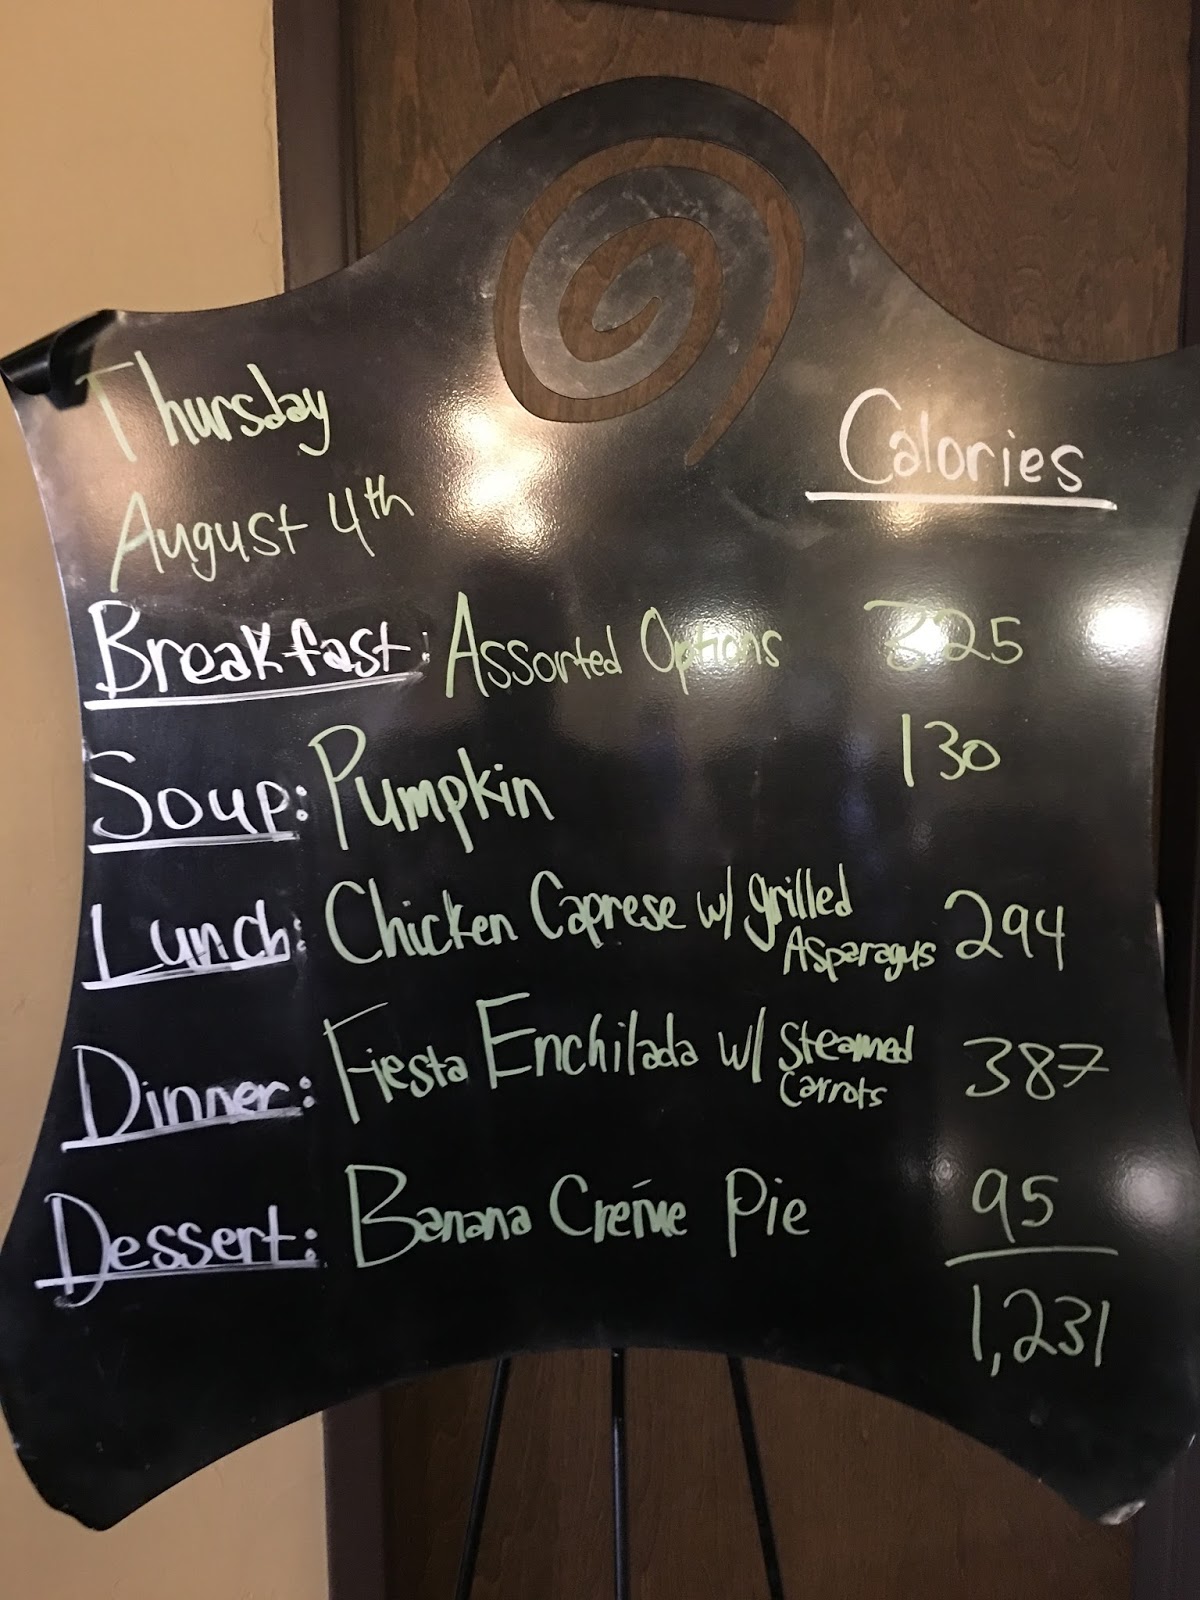 Thursday
August 4th
Calories
Breakfast: Assorted Options 325
Soup: Pumpkin 130
Lunch: Chicken Caprese w/ grilled Asparagus 294
Dinner: Fiesta Enchilada w/ Steamed Carrots 387
Dessert: Banana Creme Pie 95
1,231